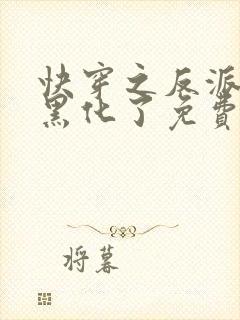 快穿之反派
黑化了免费
将暮